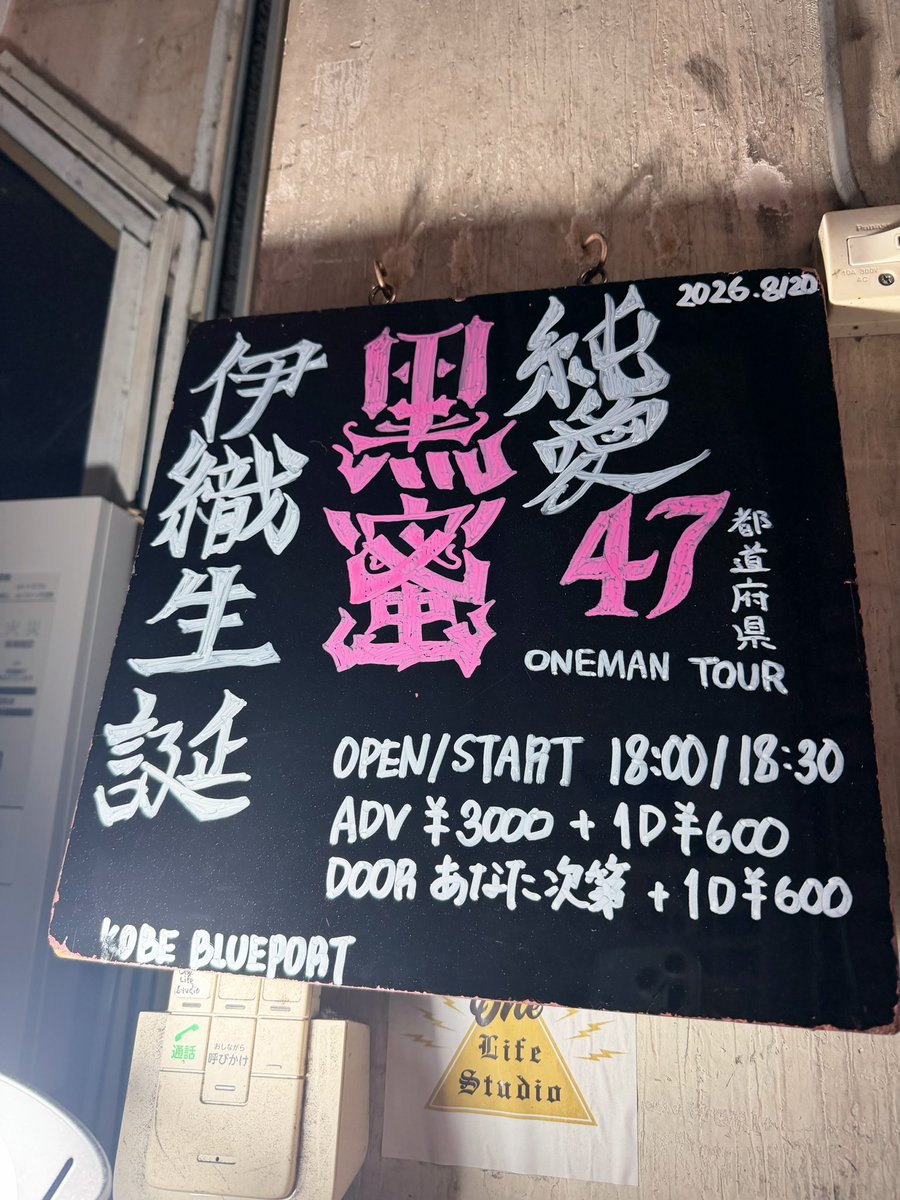 2026.8/20
純愛
47
都道府県
ONEMAN TOUR
黒蜜
伊織生誕
OPEN/START 18:00/18:30
ADV ¥3000 + 1D¥600
DOOR あなた次第 + 1D¥600
KOBE BLUEPORT
One
Life
Studio
通話
おしながら
呼びかけ
One
Life
Studio
10A 300V
AC
火災